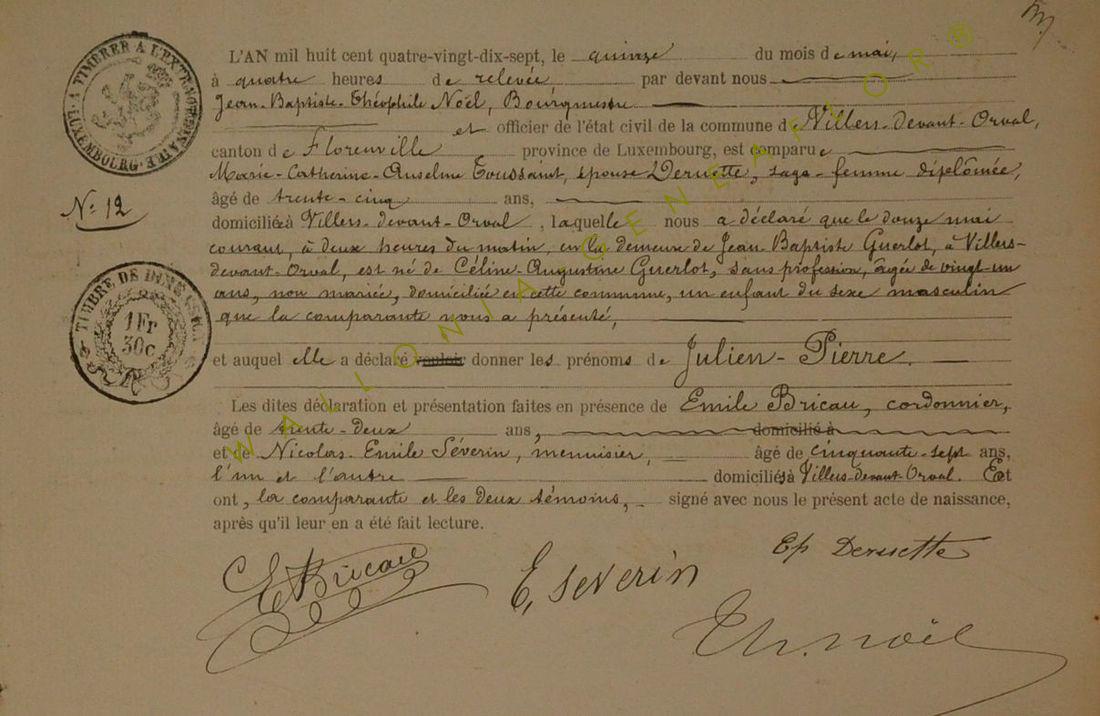 L'AN mil huit cent quatre-vingt-dix-sept, le quinze du mois de mai,
à quatre heures de relevée par devant nous
Jean-Baptiste-Théophile Noël, Bourgmestre
et officier de l'état civil de la commune de Villers-devant-Orval,
canton de Florenville province de Luxembourg, est comparue
Marie-Catherine-Anselme Toussaint, épouse Deruette, sage-femme diplômée,
âgé de trente-cinq ans,
domiciliée à Villers-devant-Orval, laquelle nous a déclaré que le douze mai
courant, à deux heures du matin, en la demeure de Jean-Baptiste Guerlot, à Villers-
devant-Orval, est né de Céline-Augustine Guerlot, sans profession, âgée de vingt-un
ans, non mariée, domiciliée en cette commune, un enfant du sexe masculin
que la comparante nous a présenté,
et auquel elle a déclaré vouloir donner les prénoms de Julien-Pierre.
Les dites déclaration et présentation faites en présence de Emile Bricau, cordonnier,
âgé de trente-deux ans, domicilié à
et de Nicolas-Emile Séverin, menuisier, âgé de cinquante-sept ans,
l'un et l'autre domiciliés à Villers-devant-Orval. Et
ont, la comparante et les deux témoins, signé avec nous le présent acte de naissance,
après qu'il leur en a été fait lecture.
A TIMBRER A L'EXTRAORDINAIRE
LUXEMBOURG
N° 12
TIMBRE DE DIMENSION
1 Fr
30c
E Bricau
E, Severin
Ep Deruette
Th. Noël
WALLONIA GENEA FLOR ®